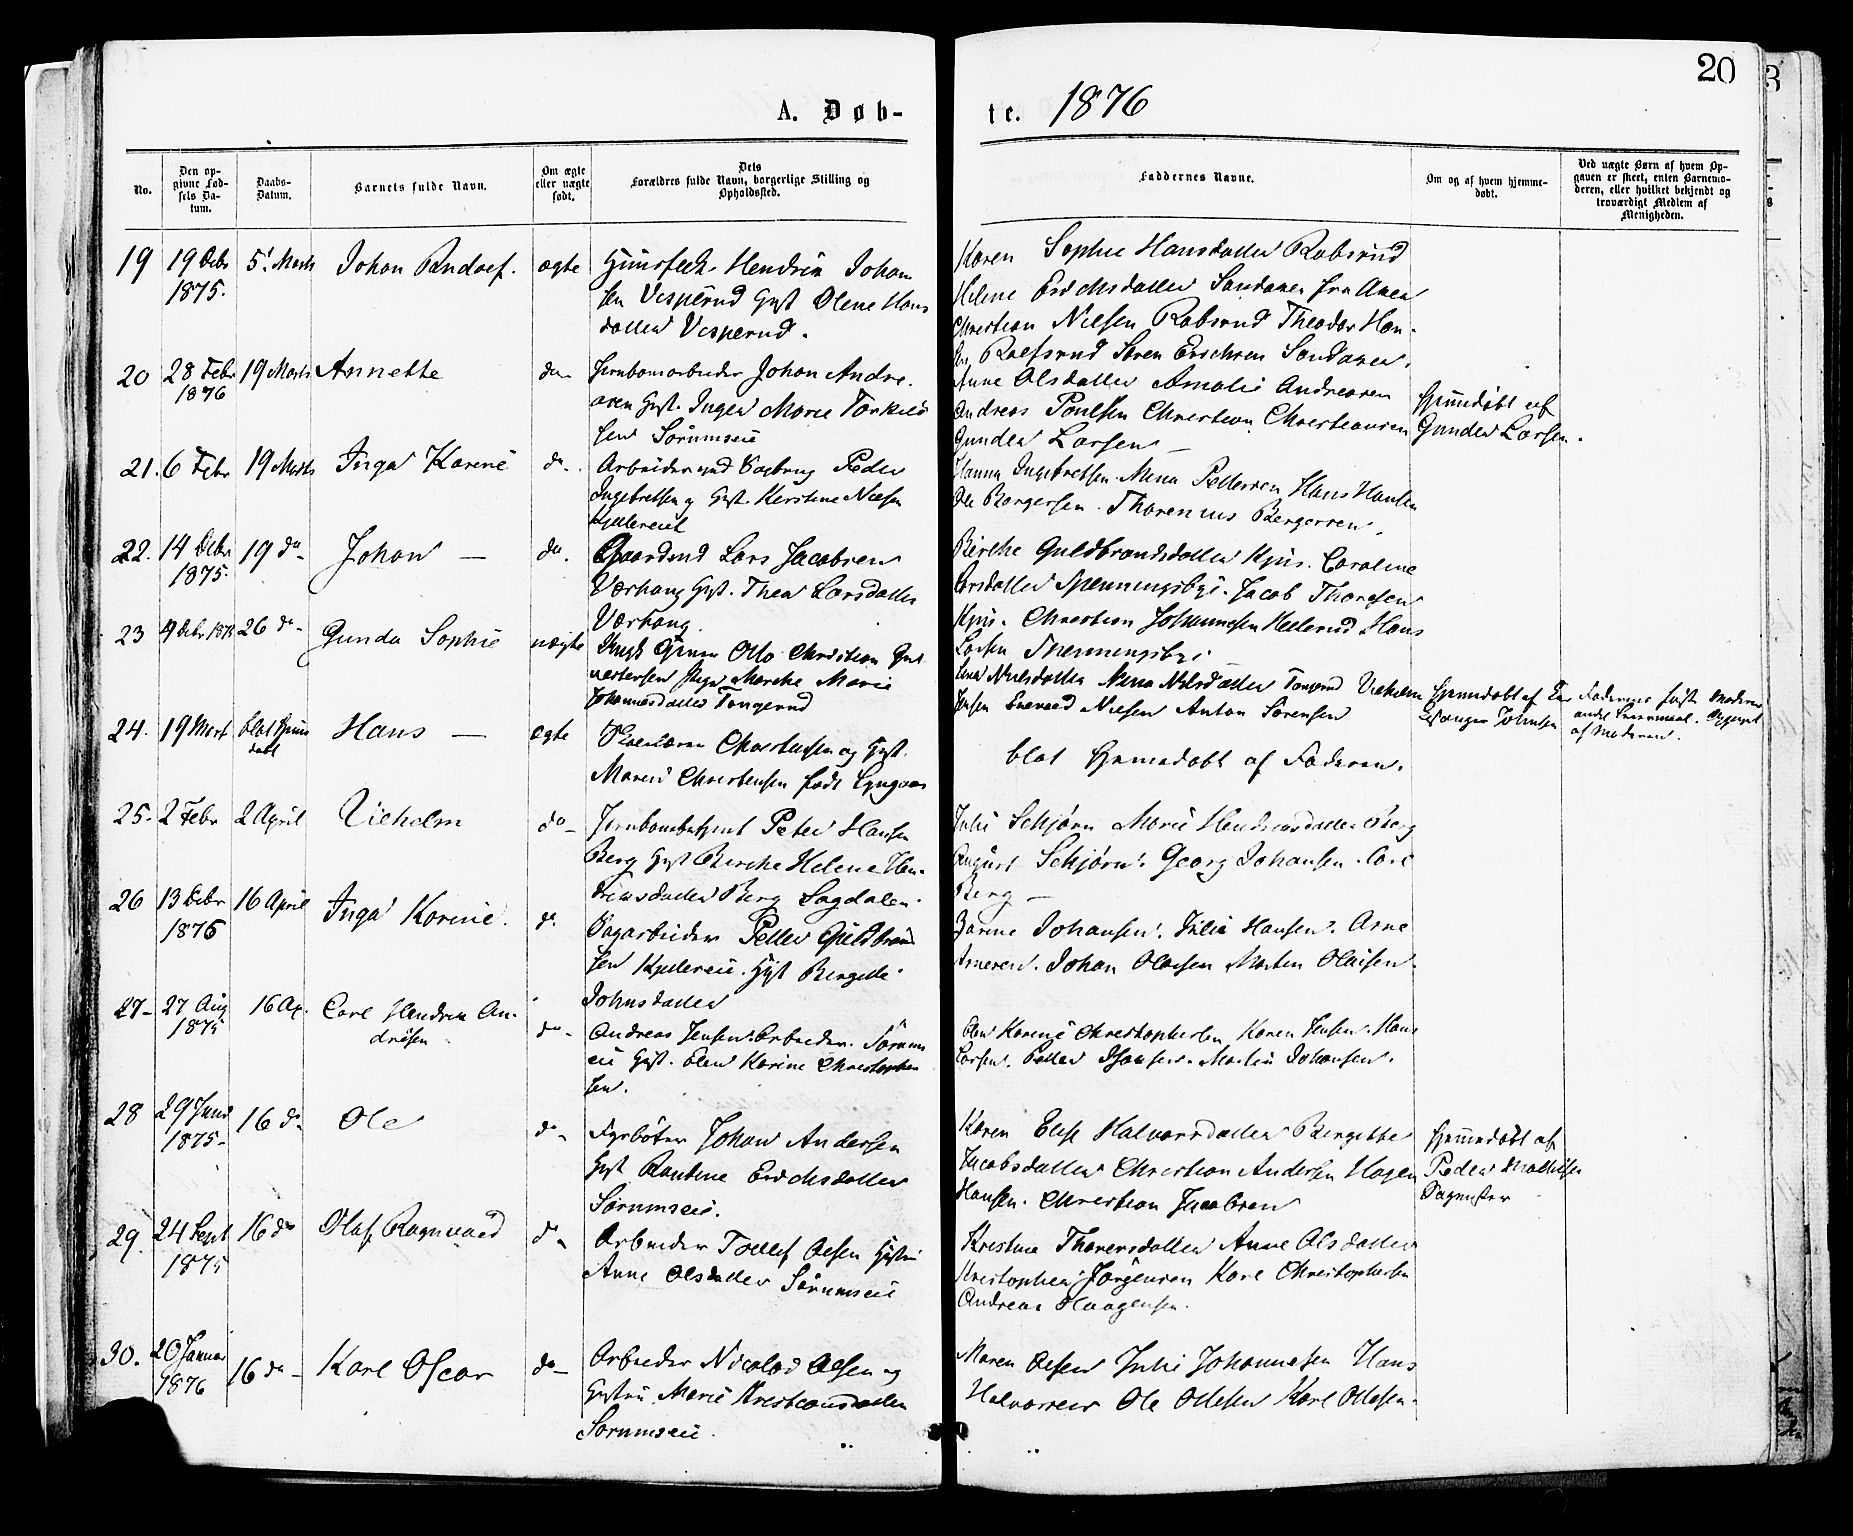 20
A. Døb-
te. 1876
No.
Den op-
givne Fød-
sels Da-
tum.
Daabs-
Datum.
Barnets fulde Navn.
Om ægte
eller uægte
født.
Dets
Forældres fulde Navn, borgerlige Stilling og
Opholdssted.
Faddernes Navne.
Om og af hvem hjemme-
døbt.
Ved uægte Børn af hvem Op-
gaven er skeet, enten Barnemo-
deren, eller hvilket bekjendt og
troværdigt Medlem af
Menigheden.
19 19 Debr 5t Marts Johan Randolf. ægte Hendrik Johan
1875.
sen Vesperud Hust Olene Hans
datter Vesperud.
Karen Sophie Hansdatter Rabsrud
Helene Erichsdatter Sandaker fra Aker
Christian Nielsen Rabsrud Theodor Han-
sen Søren Erichsen Sandaker.
20 28 Febr 19 Marts Annette do- Jernbanarbeider Johan Andre-
1876
asen Hust. Inger Marie Torkels
sen Sørumseie
Anne Olsdatter Amalie Andreasen
Andreas Poulsen Christian Christiansen
Gunder Larsen —
Hjemdøbt af
Gunder Larsen.
21. 6 Febr 19 Marts Inga Karine do. Arbeider ved Sagbrug Peder
Ingebretsen og Hust. Kirstine Nielsen
Hanna Ingebretsen. Mina Pettersen Hans Hansen
Ole Borgersen. Thorenius Bergersen.
22. 14 Debr 19 do- Johan — do. Gaardmd Lars Jacobsen
1875.
Værhaug Hust. Thea Larsdatter
Værhaug.
Birthe Guldbrandsdatter Kjus. Caroline
Larsdatter Jacob Thoresen
Kjus. Christian Johannesen Hellerud Hans
Larsen
23 9 Debr 1875 26 do- Gunda Sophie uægte Ungk Otto Christian
Pige Marthe Marie
Johannesdatter Tangerud
Nielsdatter Mina Nilsdatter Tangerud Vilhelm
Jensen Edevard Nielsen Anton Sørensen
Hjemdøbt af
Johnsen
Faderens første Moderens
andet Leiermaal. Opgivet
af Moderen.
24. 19 Mart blot Hjem Hans — ægte Christensen og Hust.
døbt
Maren Christensen født Lyngaas
blot Hjemmedøbt af Faderen.
25. 2 Febr 2 April Vilhelm do- Jernbanebetjent Peter Hansen
Berg Hust Birthe Helene Hen-
driksdatter Berg Sagdalen.
Julie Schjørn Marie Hendriksdatter Berg
August Schjørn. Georg Johansen. Carl
Berg —
26 13 Debr 16 April Inga Karine. do. Sagarbeider Petter Guldbrand
1875
sen Kjellereie. Hust Bergitte
Johnsdatter
Johansen. Julie Hansen. Arne
Arnesen. Johan Olaisen Morten Olaisen.
27- 27 Aug 16 Ap. Carl Hendrik An-
1875
dresen
do- Andreas Jensen. Arbeider. Sørums
eie Hust. Elen Karine Christopher
sen.
Elen Karine Christophersen Karen Jensen. Hans
Larsen. Petter Hansen. Martin Johansen.
28 29 Juni 16 do- Ole do- Fyrbøter Johan Andersen
1875-
Hust Randine Erichsdatter
Sørumseie.
Karen Elise Halvorsdatter Bergitte
Jacobsdatter Christian Andersen Hagen
Hansen. Christian Jacobsen
Hjemmedøbt af
Peder Mathisen
Sagmester
29. 24 Sept 16 do Olaf Ragnvald do- Arbeider Tollef Olsen Hustru
1875
Anne Olsdatter Sørumseie
Kristine Thoresdatter Anne Olsdatter
Kristopher Jørgensen Karl Christophersen
Andreas Haagensen.
30. 20 Januar 16 do- Karl Oscar do- Arbeider Nicolai Olsen og
1876
Hustru Marie Kristiansdatter
Sørumseie.
Maren Olsen Julie Johannesen Hans
Halvorsen Ole Olsen Karl Olsen.